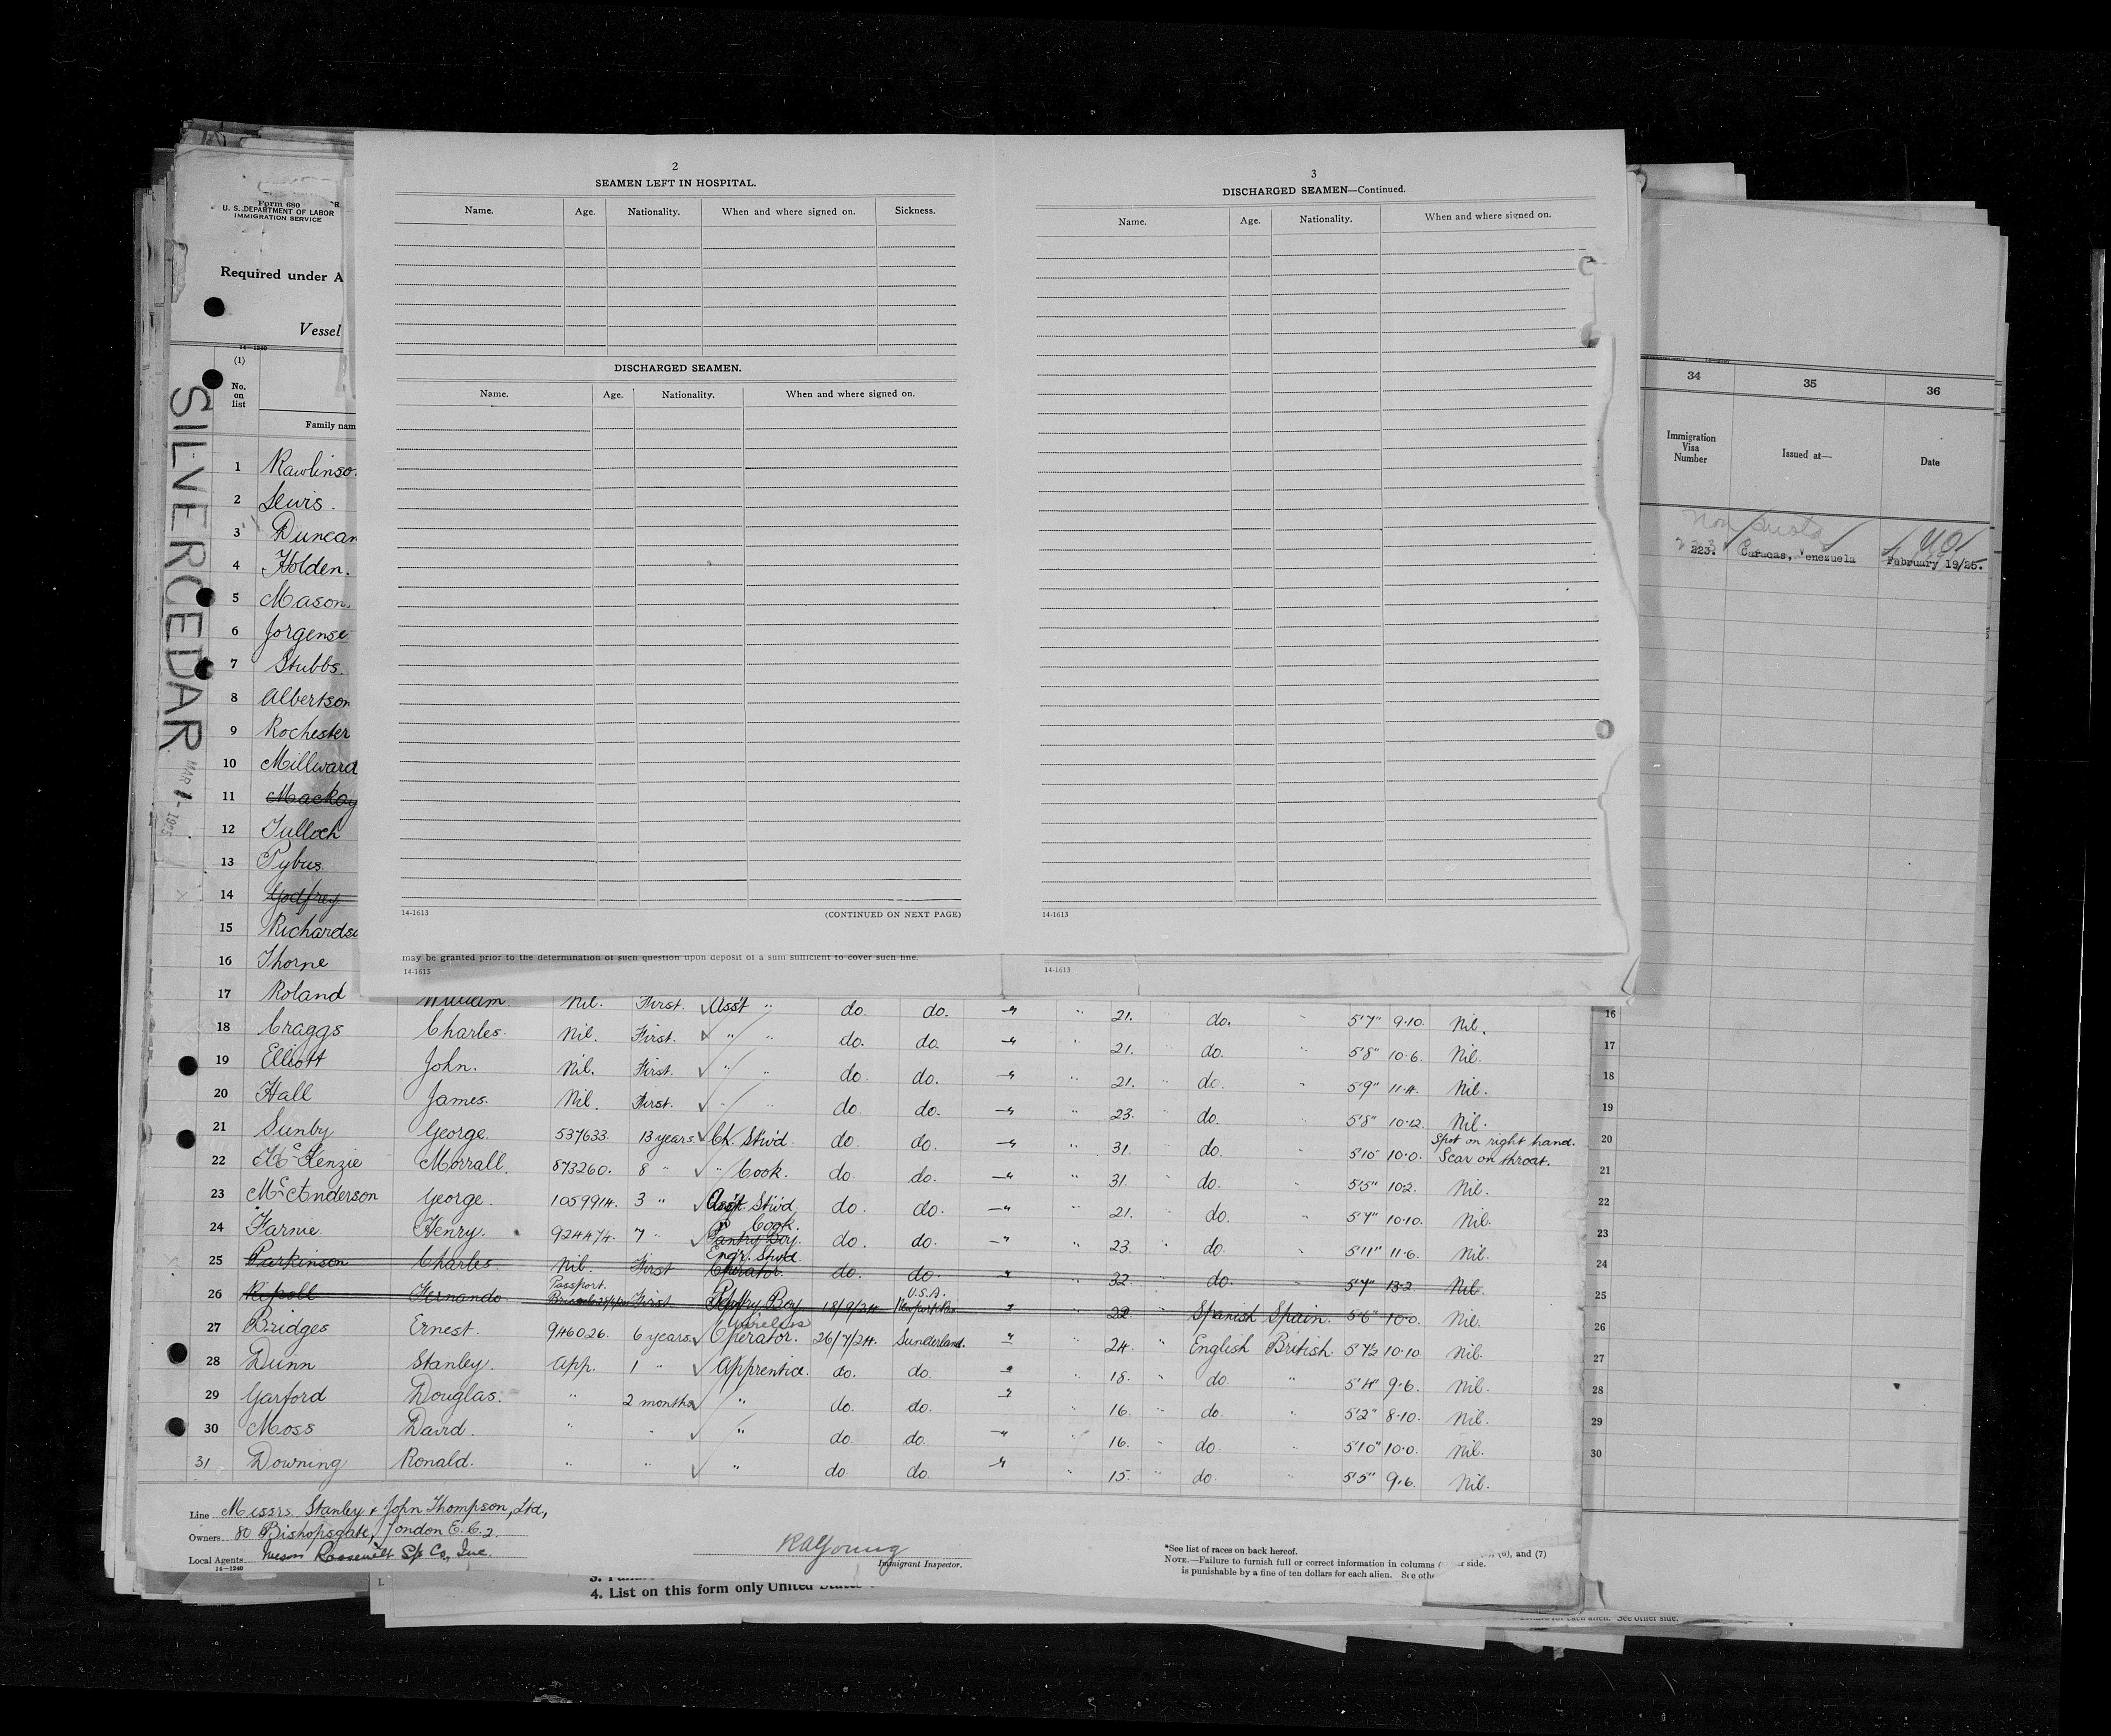 2
SEAMEN LEFT IN HOSPITAL.
Name. Age. Nationality. When and where signed on. Sickness.
DISCHARGED SEAMEN.
Name. Age. Nationality. When and where signed on.
14-1613 (CONTINUED ON NEXT PAGE)
may be granted prior to the determination of such question upon deposit of a sum sufficient to cover such fine.
14-1613
3
DISCHARGED SEAMEN—Continued.
Name. Age. Nationality. When and where signed on.
14-1613
14-1613
Form 680
U. S. DEPARTMENT OF LABOR
IMMIGRATION SERVICE
Required under A
Vessel
14—1240
(1)
No. on list
Family nam
SILVERCEDAR
MAR 1 - 1925
1 Rawlinso
2 Lewis.
3 Duncan
4 Holden.
5 Mason.
6 Jorgense
7 Stubbs.
8 Albertson
9 Rochester
10 Millward
11 Mackay
12 Tulloch
13 Pybus.
14 Godfrey
15 Richardso
16 Thorne
17 Roland William Nil. First. Asst " do. do. " " 21. do. 5'7" 9.10. Nil.
18 Craggs Charles. Nil. First. " " do. do. " " 21. do. 5'8" 10.6. Nil.
19 Elliott John. Nil. First. " " do. do. " " 21. do. 5'9" 11.4. Nil.
20 Hall James. Nil. First. " " do. do. " " 23. do. 5'8" 10.12. Nil.
21 Sunby George. 537633. 13 years. Ch. Stw'd. do. do. " " 31. do. 5'10 10.0. Spot on right hand. Scar on throat.
22 McKenzie Morrall. 873260. 8 " " Cook. do. do. " " 31. do. 5'5" 10.2. Nil.
23 McAnderson George. 1059914. 3 " Asst. Stw'd do. do. " " 21. do. 5'7" 10.10. Nil.
24 Farnie Henry. 924474. 7 " " Cook. Pantry Boy. do. do. " " 23. do. 5'11" 11.6. Nil.
25 Parkinson Charles. Nil. First Engr. Stwd. Operator. do. do. " " 32. do. 5'7" 13.2 Nil
26 Ripoll Fernando Passport. First Boy 18/9/24 U.S.A. " " 22 Spanish Spain. 5'6" 10.0. Nil.
27 Bridges Ernest. 946026. 6 years. Wireless Operator. 26/7/24. Sunderland. " " 24. English British. 5'7½ 10.10. Nil.
28 Dunn Stanley. App. 1 " Apprentice. do. do. " " 18. do. " 5'4" 9.6. Nil.
29 Garford Douglas. " 2 months " do. do. " " 16. do. " 5'2" 8.10. Nil.
30 Moss David. " " " do. do. " " 16. do. " 5'10" 10.0. Nil.
31 Downing Ronald. " " " do do " " 15. do. " 5'5" 9.6. Nil.
Line Messrs. Stanley & John Thompson, Ltd,
Owners 80 Bishopsgate, London E.C.2.
Local Agents Roosevelt S/s Co, Inc.
14—1240
RAYoung
Immigrant Inspector.
*See list of races on back hereof.
NOTE.—Failure to furnish full or correct information in columns
is punishable by a fine of ten dollars for each alien. See othe
(6), and (7)
side.
4. List on this form only United States
for each alien. See other side.
34 35 36
Immigration Visa Number Issued at— Date
223. Caracas, Venezuela February 19/25.
16
17
18
19
20
21
22
23
24
25
26
27
28
29
30